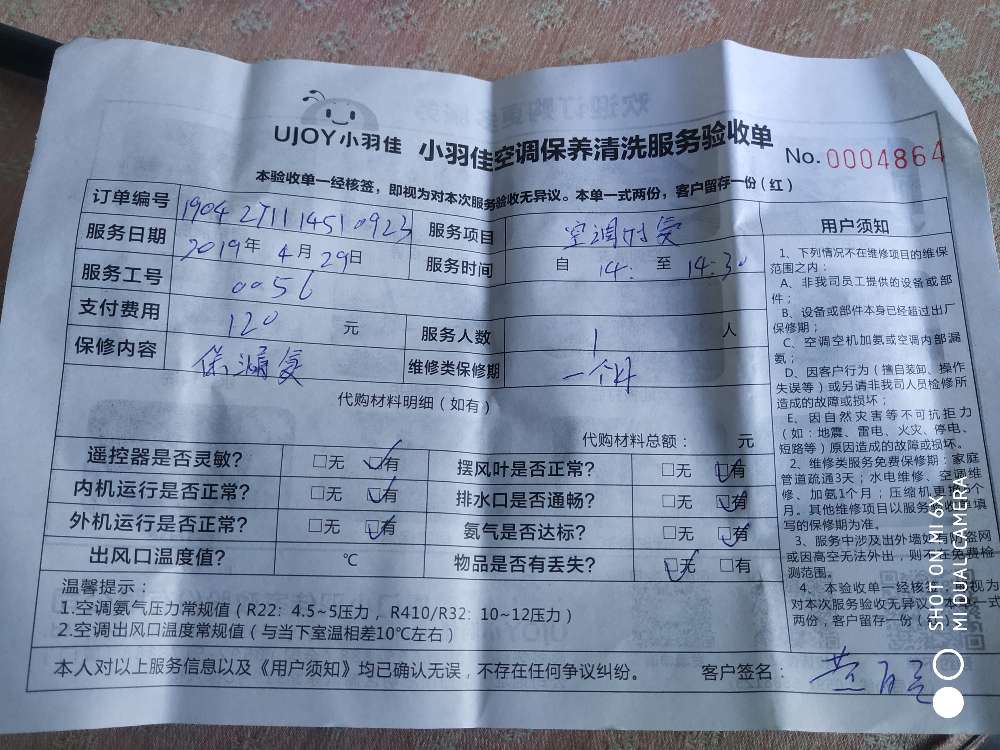 UJOY小羽佳 小羽佳空调保养清洗服务验收单 No. 0004864
本验收单一经核签，即视为对本次服务验收无异议。本单一式两份，客户留存一份（红）
订单编号 1904271114510923 服务项目
服务日期 2019年 4月 29日 服务时间 自 14: 至 14:30
服务工号 0056
支付费用 120 元 服务人数 1 人
保修内容 维修类保修期 一个月
代购材料明细（如有）
代购材料总额： 元
遥控器是否灵敏? □无 □有 摆风叶是否正常? □无 □有
内机运行是否正常? □无 □有 排水口是否通畅? □无 □有
外机运行是否正常? □无 □有 氨气是否达标? □无 □有
出风口温度值? ℃ 物品是否有丢失? □无 □有
温馨提示：
1.空调氨气压力常规值（R22: 4.5~5压力，R410/R32: 10~12压力）
2.空调出风口温度常规值（与当下室温相差10℃左右）
本人对以上服务信息以及《用户须知》均已确认无误，不存在任何争议纠纷。 客户签名：
用户须知
1、下列情况不在维修项目的维保
范围之内：
A、非我司员工提供的设备或部
件；
B、设备或部件本身已经超过出厂
保修期；
C、空调空机加氨或空调内部漏
氨；
D、因客户行为（擅自装卸、操作
失误等）或另请非我司人员检修所
造成的故障或损坏；
E、因自然灾害等不可抗拒力
（如：地震、雷电、火灾、停电、
短路等）原因造成的故障或损坏。
2、维修类服务免费保修期：家庭
管道疏通3天；水电维修、空调维
修、加氨1个月；压缩机更换
月。其他维修项目以服务验收单填
写的保修期为准。
3、服务中涉及出外墙如有防盗网
或因高空无法外出，则不在免费检
测范围。
4、本验收单一经核签，即视为
对本次服务验收无异议。本单一式
两份，客户留存一份
SHOT ON MI 6X
MI DUAL CAMERA